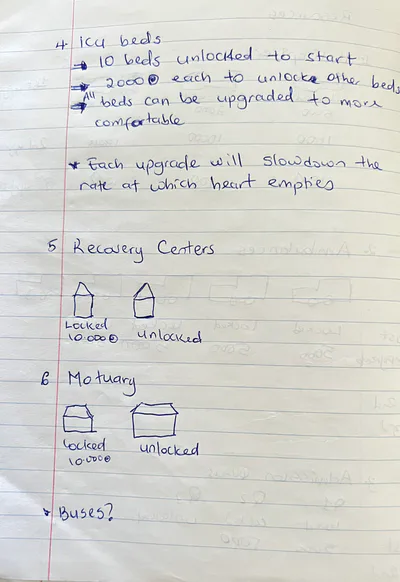 4 ICU beds
→ 10 beds unlocked to start
→ 2000 each to unlock other beds
→ All beds can be upgraded to more
comfortable
* Each upgrade will slowdown the
rate at which heart empties
5 Recovery Centers
Locked unlocked
10.000
6 Motuary
Locked unlocked
10.000
* Buses?